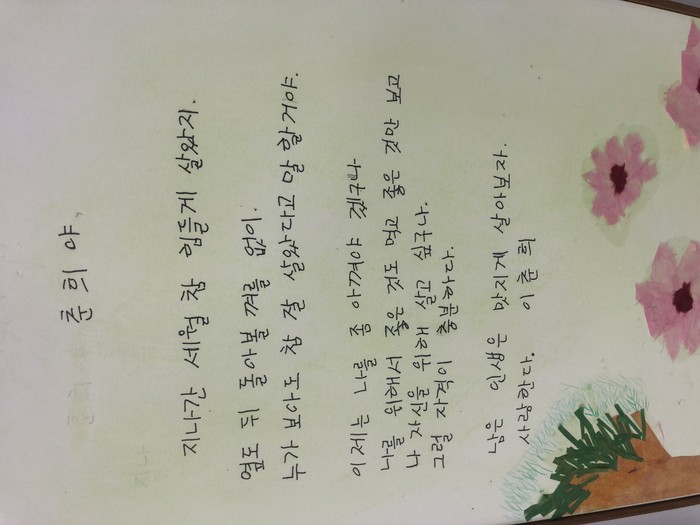 춘희 야,
지나간 세월 참 힘들게 살았지.
옆도 뒤 돌아볼 겨를 없이.
누가 보아도 참 잘 살았다고 말 할거야.
이제는 나를 좀 아껴야 겠구나
나를 위해서 좋은 것도 먹고 좋은 것만 보고
나 자신을 위해 살고 싶구나.
그럴 자격이 충분하다.
남은 인생은 맛지게 살아보자.
사랑한다. 이춘희